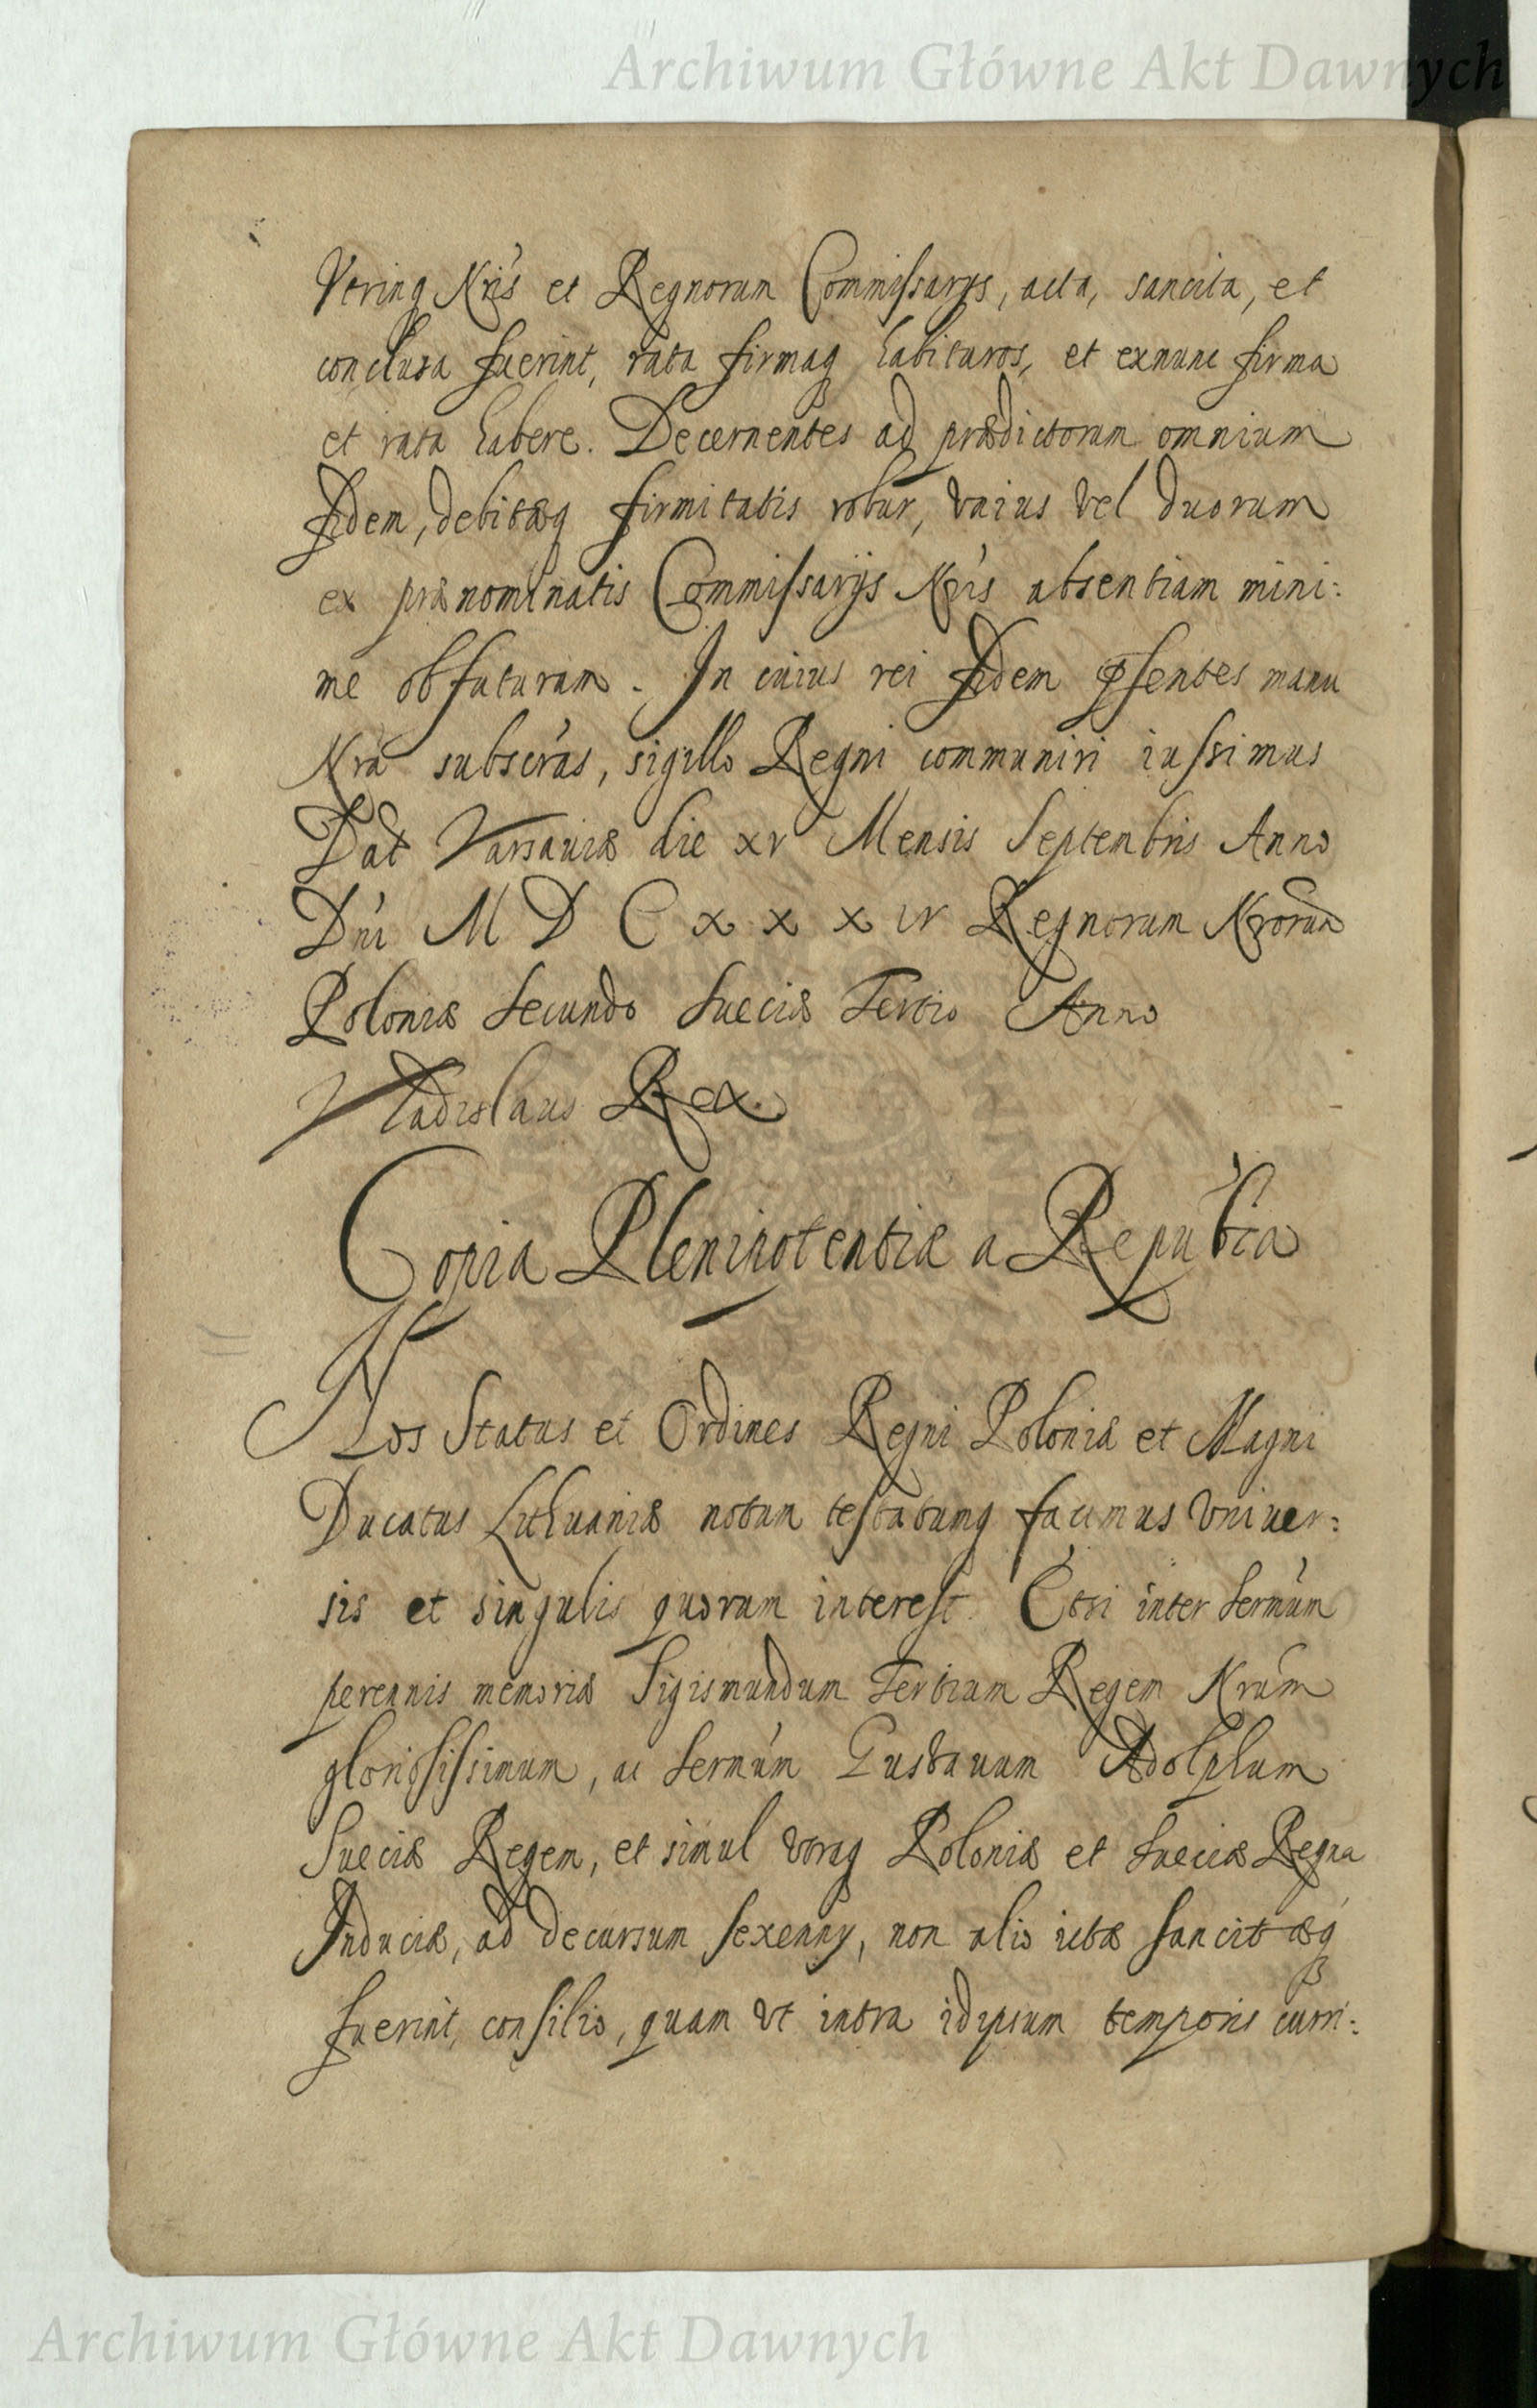 Archiwum Główne Akt Dawnych
Vtrinq Nris et Regnorum Commissarijs, acta, sancita, et
conclusa fuerint, rata firmaq habituros, et exnunc firma
et rata habere. Decernentes ad prædictorum omnium
fidem, debitæq firmitatis robur, vnius vel duorum
ex prænominatis Commissarijs Nris absentiam mini:
me obfuturam. In cuius rei fidem pֿsentes manu
Nra subscras, sigillo Regni communiri iussimus
Dat Varsauiæ die xv Mensis Septembris Anno
Dni M D C x x x iv Regnorum Nrorum
Poloniæ Secundo Sueciæ Tertio Anno
Vladislaus Rex.
Copia Plenipotentiæ a Republca
Nos Status et Ordines Regni Poloniæ et Magni
Ducatus Lithuaniæ notum testatumq facimus vniuer:
sis et singulis quorum interest. Etsi inter Sermum
perennis memoriæ Sigismundum Tertium Regem Nrum
gloriosissimum, ac Sermum Gustauum Adolphum
Sueciæ Regem, et simul vtraq Poloniæ et Sueciæ Regna
Induciæ, ad decursum sexennij, non alio ictæ sancitæq
fuerint, consilio, quam vt intra idipsum temporis curri:
Archiwum Główne Akt Dawnych